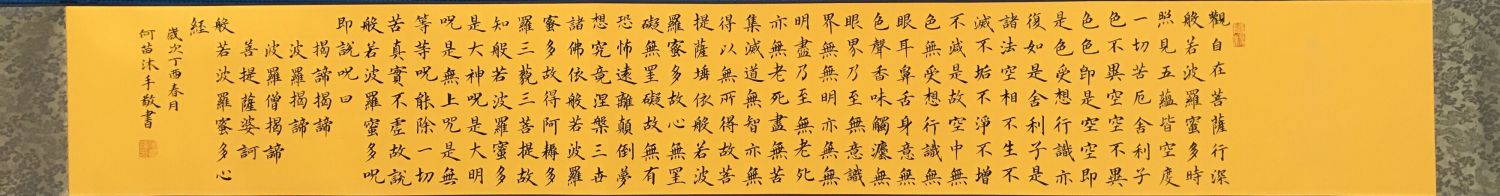 觀自在菩薩行深
般若波羅蜜多時
照見五蘊皆空度
一切苦厄舍利子
色不異空空不異
色色即是空空即
是色受想行識亦
復如是舍利子是
諸法空相不生不
滅不垢不淨不增
不滅是故空中無
色無受想行識無
眼耳鼻舌身意無
色聲香味觸灋無
眼界乃至無意識
界無無明亦無無
明盡乃至無老死
亦無老死盡無苦
集滅道無智亦無
得以無所得故菩
提薩埵依般若波
羅蜜多故心無罣
礙無罣礙故無有
恐怖遠離顛倒夢
想究竟涅槃三世
諸佛依般若波羅
蜜多故得阿耨多
羅三藐三菩提故
知般若波羅蜜多
是大神咒是大明
咒是無上咒是無
等等咒能除一切
苦真實不虛故說
般若波羅蜜多咒
即說咒曰
揭諦揭諦
波羅揭諦
波羅僧揭諦
菩提薩婆訶
般若波羅蜜多心
經
歲次丁酉春月
何苗沐手敬書